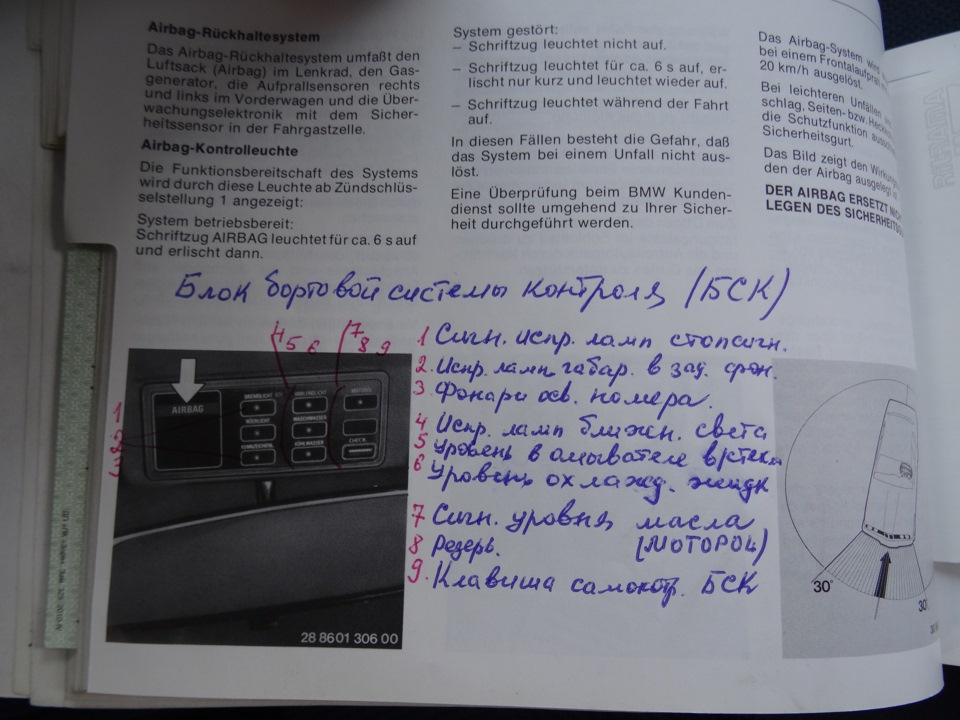 Airbag-Rückhaltesystem
Das Airbag-Rückhaltesystem umfaßt den
Luftsack (Airbag) im Lenkrad, den Gas-
generator, die Aufprallsensoren rechts
und links im Vorderwagen und die Über-
wachungselektronik mit dem Sicher-
heitssensor in der Fahrgastzelle.
Airbag-Kontrolleuchte
Die Funktionsbereitschaft des Systems
wird durch diese Leuchte ab Zündschlüs-
selstellung 1 angezeigt:
System betriebsbereit:
Schriftzug AIRBAG leuchtet für ca. 6 s auf
und erlischt dann.
System gestört:
– Schriftzug leuchtet nicht auf.
– Schriftzug leuchtet für ca. 6 s auf, er-
lischt nur kurz und leuchtet wieder auf.
– Schriftzug leuchtet während der Fahrt
auf.
In diesen Fällen besteht die Gefahr, daß
das System bei einem Unfall nicht aus-
löst.
Eine Überprüfung beim BMW Kunden-
dienst sollte umgehend zu Ihrer Sicher-
heit durchgeführt werden.
Das Airbag-System wird
bei einem Frontalaufprall
20 km/h ausgelöst.
Bei leichteren Unfällen
schlag, Seiten- bzw. Hecka
die Schutzfunktion aussch
Sicherheitsgurt.
Das Bild zeigt den Wirkun
den der Airbag ausgelegt
DER AIRBAG ERSETZT NICH
LEGEN DES SICHERHEITSG
Блок бортовой системы контроля (БСК)
4 5 6 7 8 9
1 Сигн. испр. ламп стопсигн.
2. Испр. ламп габар. в зад. фон.
3 Фонари осв. номера.
4 Испр. ламп ближн. света
5 Уровень в омывателе в/стекл
6 Уровень охлажд. жидк
7 Сигн. уровня масла
8 Резерв. (MOTOPÖL)
9. Клавиша самоконтр. БСК
1
2
3
AIRBAG
BREMSLICHT
ABBLENDLICHT
MOTORÖL
RÜCKLICHT
WASCHWASSER
KENNZEICHENL
KÜHLWASSER
CHECK
28 8601 306 00
30°
30°